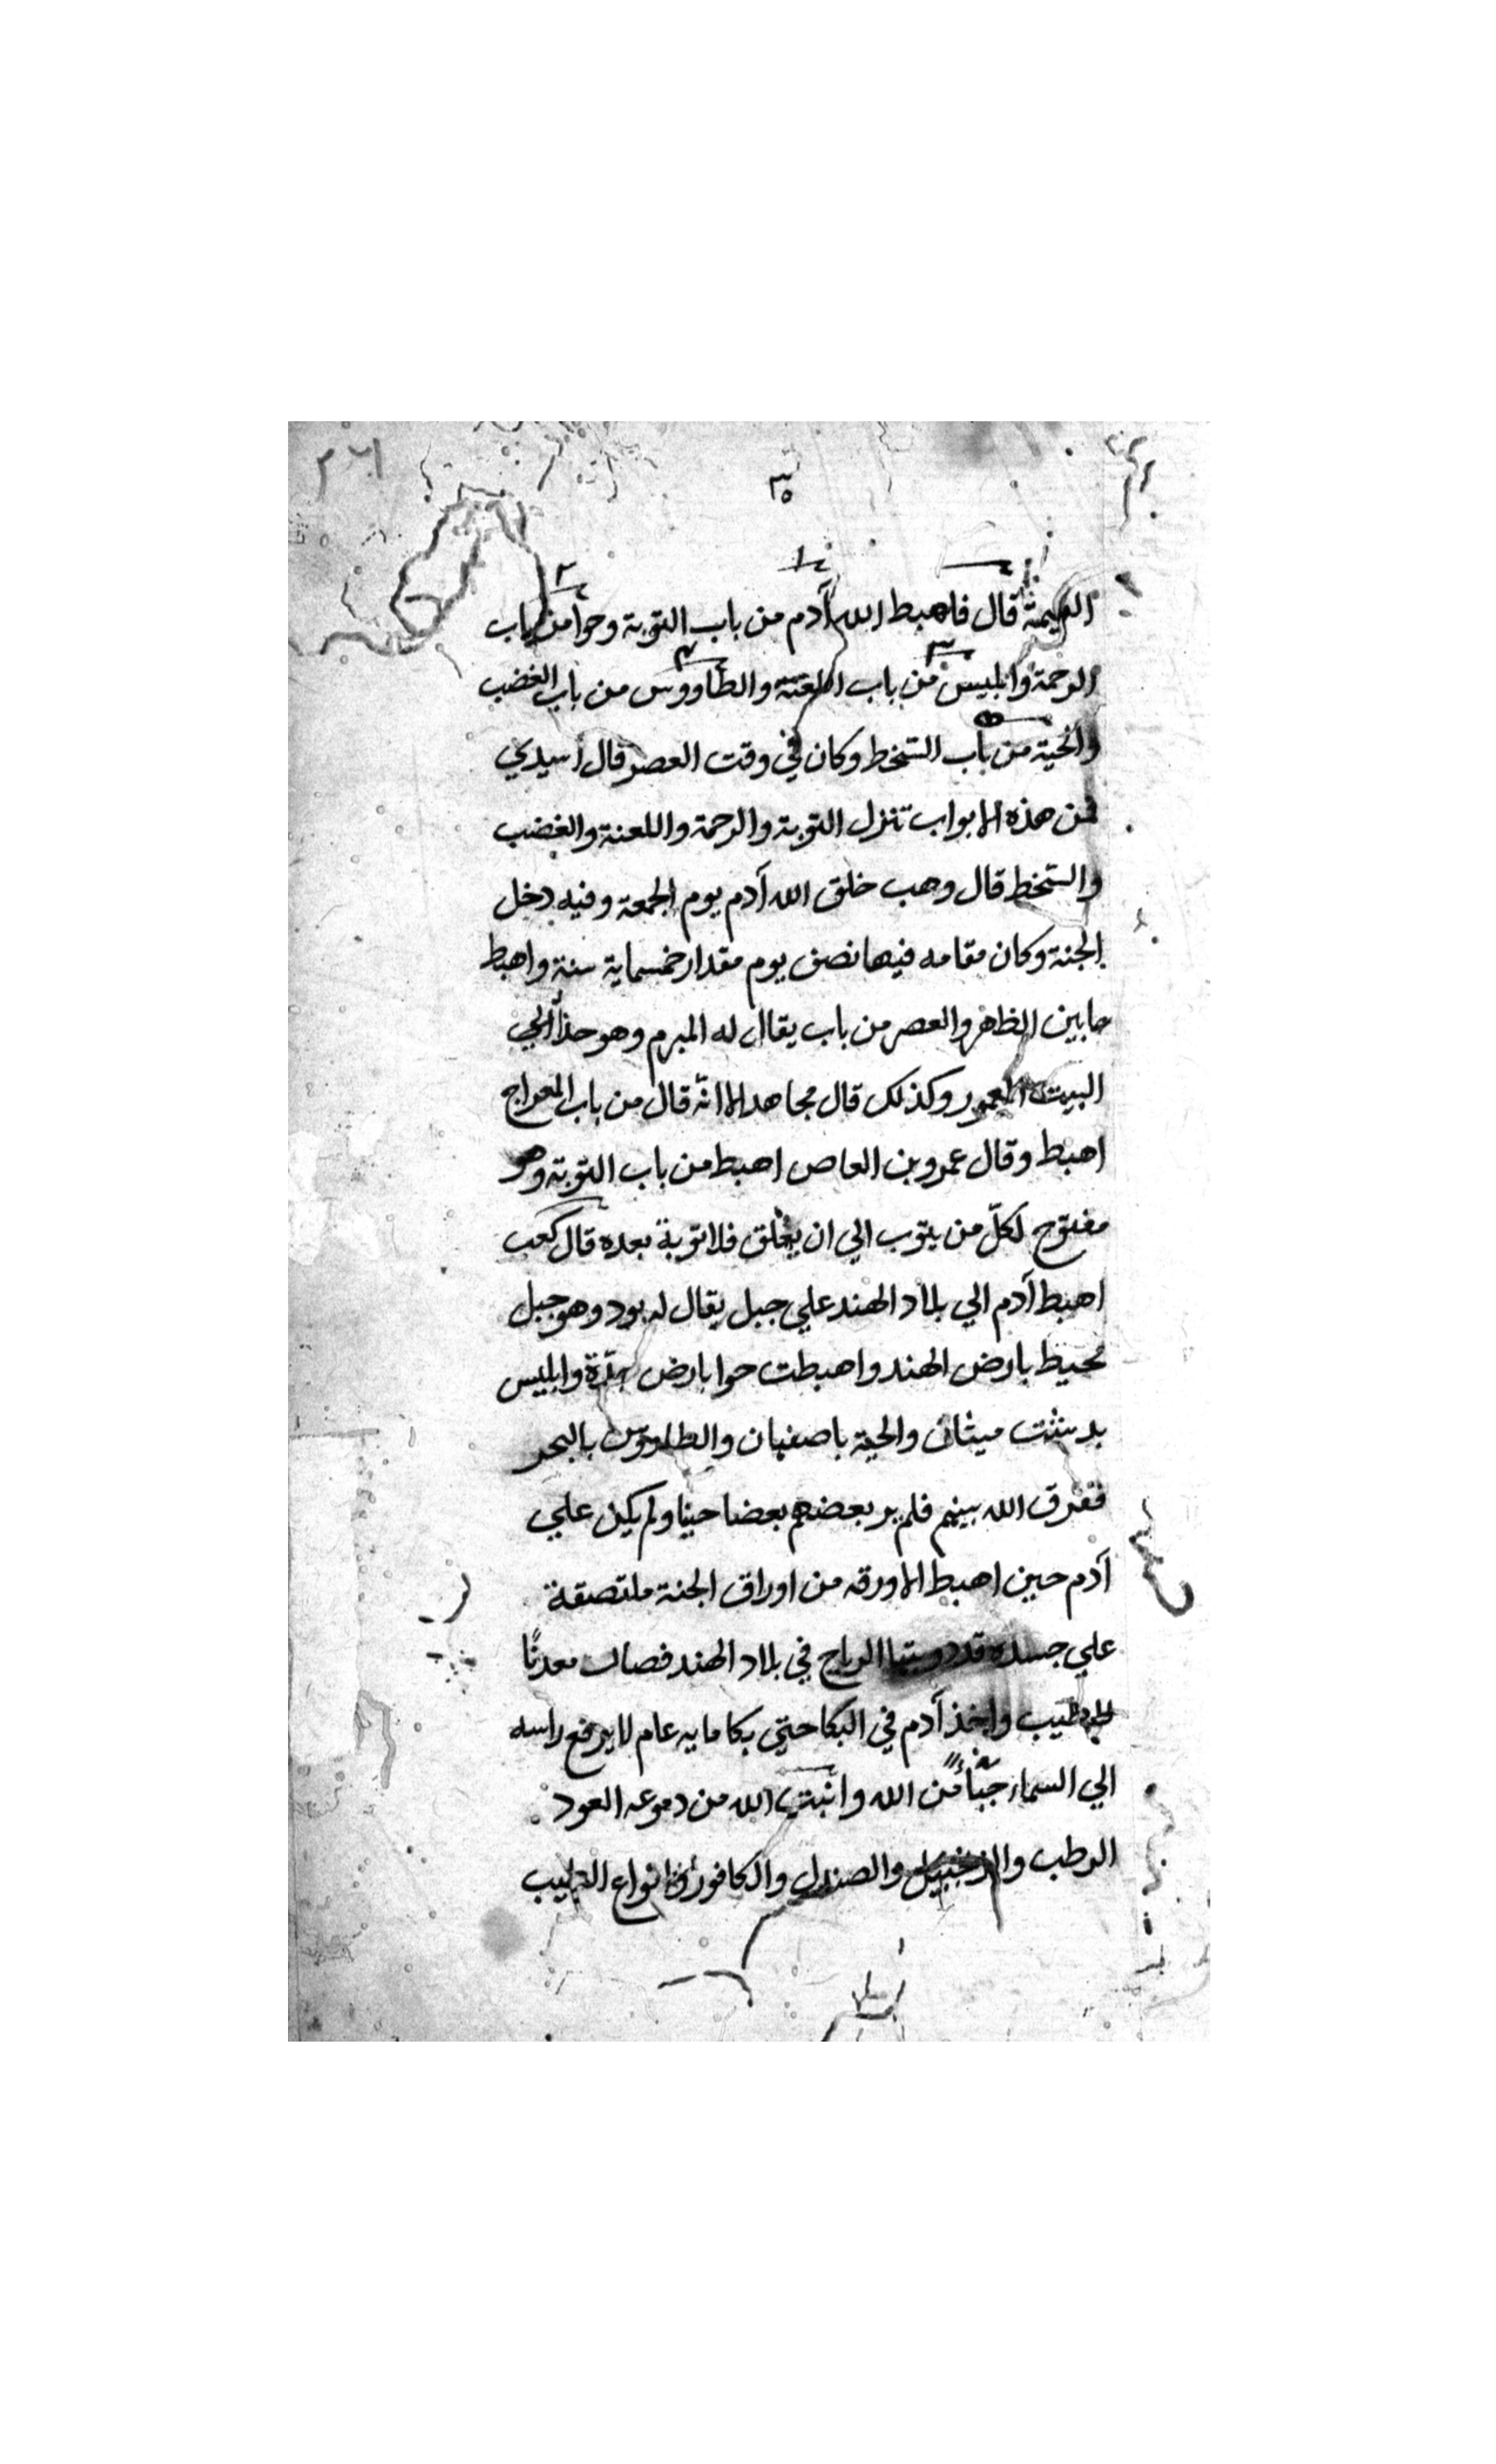 ٣٥
القيمة قال فاهبط الله آدم من باب التوبة وحوا من باب
الرحمة وابليس من باب اللعنة والطاووس من باب الغضب
والحية من باب السخط وكان في وقت العصر قال اسيدي
فمن هذه الابواب تنزل التوبة والرحمة واللعنة والغضب
والسخط قال وهب خلق الله آدم يوم الجمعة وفيه دخل
الجنة وكان مقامه فيها نصف يوم مقدار خمسماية سنة واهبط
ما بين الظهر والعصر من باب يقال له المبرم وهو حذا الي
البيت المعمور وكذلك قال مجاهد الا انّه قال من باب المعراج
اهبط وقال عمرو بن العاص اهبط من باب التوبة وهو
مفتوح لكلّ من يتوب الي ان يغلق فلا توبة بعده قال كعب
اهبط آدم الي بلاد الهند علي جبل يقال له بود وهو جبل
محيط بارض الهند واهبطت حوا بارض جدّة وابليس
ميثان والحية باصفهان والطاووس بالبحر
ففرق الله بينهم فلم ير بعضهم بعضا حينا ولم يكن علي
آدم حين اهبط الا ورقه من اوراق الجنة ملتصقة
علي جسده قد الرياح في بلاد الهند فصارت معدنًا
للطيب واخذ آدم في البكا حتي بكا مايه عام لا يرفع راسه
الي السماء من الله وانبت الله من دموعه العود
الرطب والزنجبيل والصندل والكافور وانواع الطيب